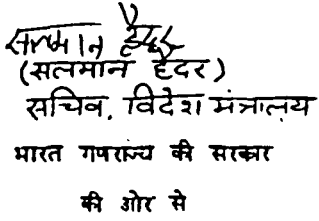 सलमान हैदर
(सलमान हैदर)
सचिव, विदेश मंत्रालय
भारत गणराज्य की सरकार
की ओर से